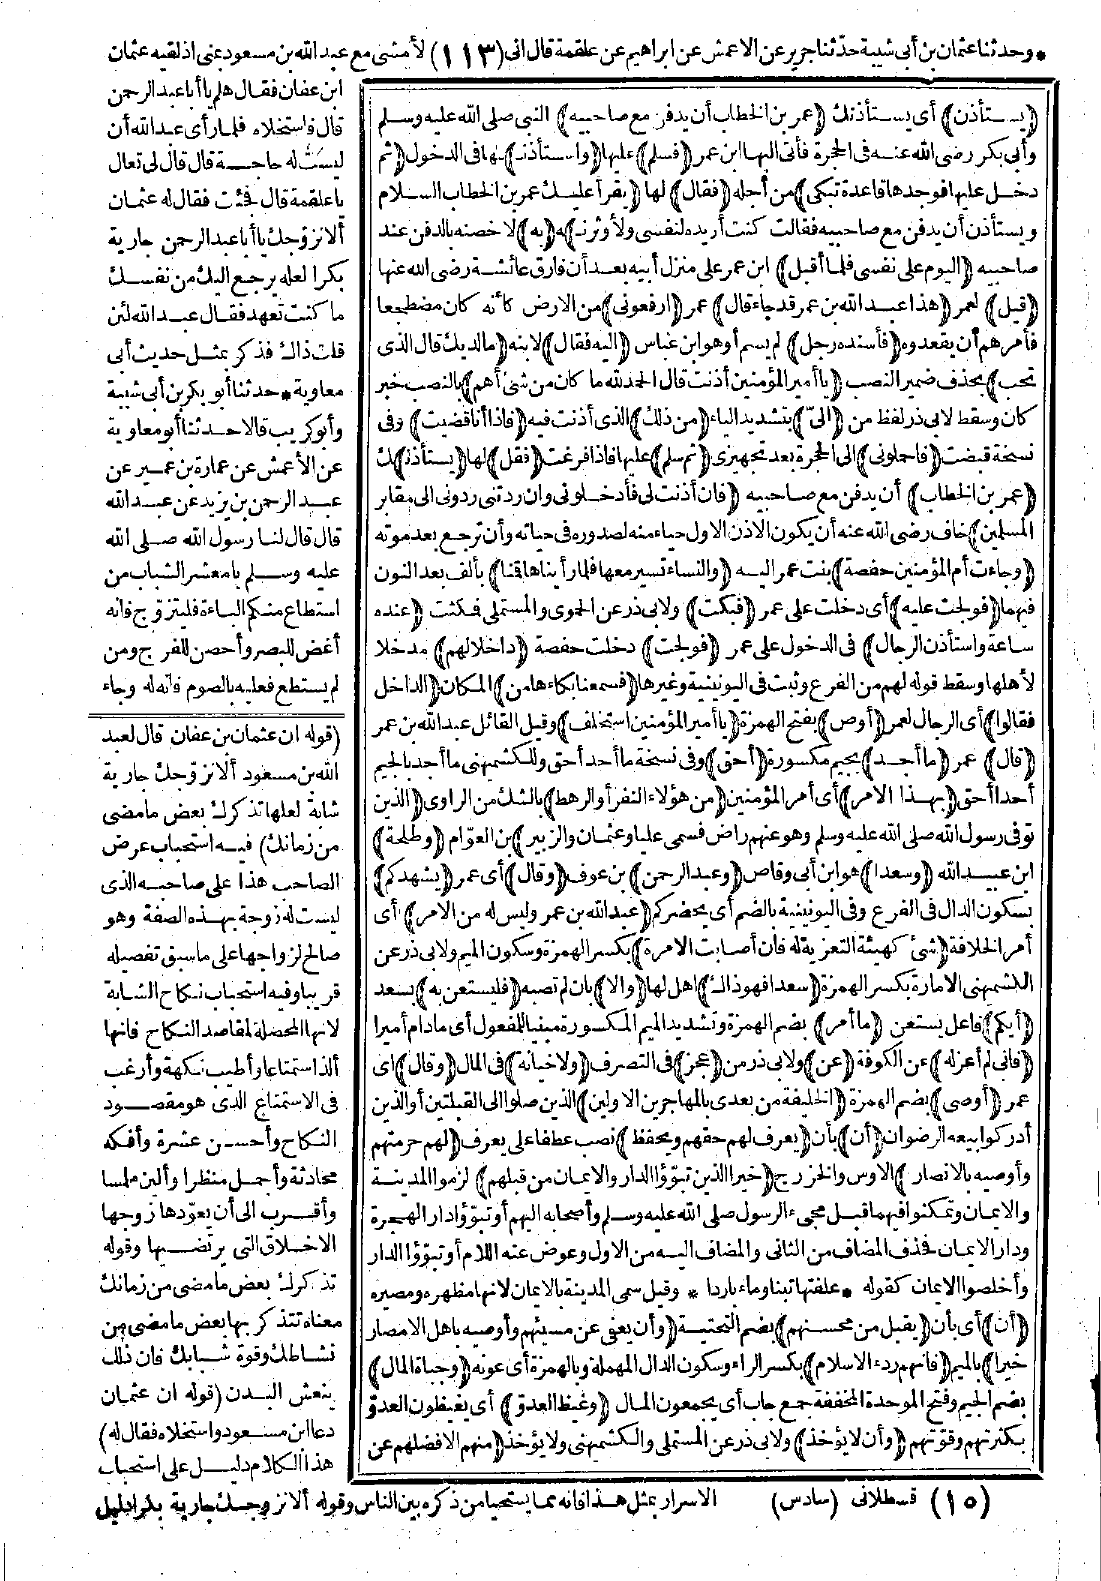 * وحدثنا عثمان بن أبي شيبة حدثنا جرير عن الاعمش عن ابراهيم عن علقمة قال انى (١١٣) لأمشى مع عبد الله بن مسعود بمنى اذ لقيه عثمان
(يستأذن) أى يستأذنك (عمر بن الخطاب أن يدفن مع صاحبيه) النبي صلى الله عليه وسلم
وأبى بكر رضى الله عنه فى الحجرة فأتى اليها ابن عمر (فسلم) عليها (واستأذن) ـها فى الدخول (ثم
دخل عليها فوجدها قاعدة تبكى) من أجله (فقال) لها (يقرأ عليك عمر بن الخطاب السلام
ويستأذن أن يدفن مع صاحبيه فقالت كنت أريده لنفسى ولأوثرنـ) ـه (به) لاخصنه بالدفن عند
صاحبيه (اليوم على نفسى فلما أقبل) ابن عمر على منزل أبيه بعد أن فارق عائشة رضى الله عنها
(قيل) لعمر (هذا عبد الله بن عمر قد جاء قال) عمر (ارفعونى) من الارض كأنه كان مضطجعا
فأمرهم أن يقعدوه (فأسنده رجل) لم يسم أو هو ابن عباس (اليه فقال) لابنه (مالديك قال الذى
تحب) بحذف ضمير النصب (يا أمير المؤمنين أذنت قال الحمد لله ما كان من شئ أهم) بالنصب خبر
كان وسقط لابى ذر لفظ من (الىّ) بتشديد الياء (من ذلك) الذى أذنت فيه (فاذا أنا قضيت) وفى
نسخة قبضت (فاحملونى) الى الحجرة بعد تجهيزى (ثم سلم) عليها فاذا فرغت (فقل) لها (يستأذنـ) ـك
(عمر بن الخطاب) أن يدفن مع صاحبيه (فان أذنت لى فأدخلونى وان ردتنى ردونى الى مقابر
المسلمين) خاف رضى الله عنه أن يكون الاذن الاول حياء منه لصدوره فى حياته وأن ترجع بعد موته
(وجاءت أم المؤمنين حفصة) بنت عمر اليه (والنساء تسير معها فلما رأيناها قمنا) بألف بعد النون
فيهما (فولجت عليه) أى دخلت على عمر (فبكت) ولابى ذر عن الحموى والمستملى فمكثت (عنده
ساعة واستأذن الرجال) فى الدخول على عمر (فولجت) دخلت حفصة (داخلا لهم) مدخلا
لأهلها وسقط قوله لهم من الفرع وثبت فى اليونينية وغيرها (فسمعنا بكاءها من) المكان (الداخل
فقالوا) أى الرجال لعمر (أوص) بفتح الهمزة (يا أمير المؤمنين استخلف) وقيل القائل عبد الله بن عمر
(قال) عمر (ما أجد) بجيم مكسورة (أحق) وفى نسخة ما أحد أحق وللكشميهنى ما أجد بالجيم
أحدا أحق (بهذا الامر) أى أمر المؤمنين (من هؤلاء النفر أو الرهط) بالشك من الراوى (الذين
توفى رسول الله صلى الله عليه وسلم وهو عنهم راض فسمى عليا وعثمان والزبير) بن العوّام (وطلحة)
ابن عبيد الله (وسعدا) هو ابن أبى وقاص (وعبد الرحمن) بن عوف (وقال) أى عمر (يشهدكم)
بسكون الدال فى الفرع وفى اليونينية بالضم أى يحضركم (عبد الله بن عمر وليس له من الامر) أى
أمر الخلافة (شئ كهيئة التعزية له فان أصابت الامرة) بكسر الهمزة وسكون الميم ولابى ذر عن
الكشميهنى الامارة بكسر الهمزة (سعدا فهو ذاك) اهل لها (والا) بان لم تصبه (فليستعن به) بسعد
(أيكم) فاعل يستعن (ما أمر) بضم الهمزة وتشديد الميم المكسورة مبنيا للمفعول أى مادام أميرا
(فانى لم أعزله) عن الكوفة (عن) ولابى ذر من (عجز) فى التصرف (ولا خيانة) فى المال (وقال) اى
عمر (أوصى) بضم الهمزة (الخليفة من بعدى بالمهاجرين الاولين) الذين صلوا الى القبلتين أو الذين
أدركوا بيعة الرضوان (أن) بأن (يعرف لهم حقهم ويحفظ) نصب عطفا على يعرف (لهم حرمتهم
وأوصيه بالانصار) الاوس والخزرج (خيرا الذين تبوّؤا الدار والايمان من قبلهم) لزموا المدينة
والايمان وتمكنوا فيهما قبل مجىء الرسول صلى الله عليه وسلم وأصحابه اليهم أو تبوّؤا دار الهجرة
ودار الايمان فحذف المضاف من الثانى والمضاف اليه من الاول وعوض عنه اللام أو تبوّؤا الدار
وأخلصوا الايمان كقوله * علفتها تبنا وماء باردا * وقيل سمى المدينة بالايمان لانها مظهره ومصيره
(أن) أى بأن (يقبل من محسنهم) بضم التحتية (وأن يعفى عن مسيئهم وأوصيه باهل الامصار
خيرا) بالميم (فانهم ردء الاسلام) بكسر الراء وسكون الدال المهملة وبالهمزة أى عونه (وجباة المال)
بضم الجيم وفتح الموحدة المخففة جمع جاب أى يجمعون المال (وغيظ العدوّ) أى يغيظون العدوّ
بكثرتهم وقوّتهم (وأن لا يؤخذ) ولابى ذر عن المستملى والكشميهنى ولا يؤخذ (منهم الا فضلهم عن
ابن عفان فقال هلم يا أبا عبد الرحمن
قال فاستخلاه فلما رأى عبد الله أن
ليست له حاجة قال قال لى تعال
يا علقمة قال فجئت فقال له عثمان
ألا نزوّجك يا أبا عبد الرحمن جارية
بكرا لعله يرجع اليك من نفسك
ما كنت تعهد فقال عبد الله لئن
قلت ذاك فذكر بمثل حديث أبى
معاوية * حدثنا أبو بكر بن أبى شيبة
وأبو كريب قالا حدثنا أبو معاوية
عن الأعمش عن عمارة بن عمير عن
عبد الرحمن بن يزيد عن عبد الله
قال قال لنا رسول الله صلى الله
عليه وسلم يا معشر الشباب من
استطاع منكم الباءة فليتزوّج فانه
أغض للبصر وأحصن للفرج ومن
لم يستطع فعليه بالصوم فانه له وجاء
(قوله ان عثمان بن عفان قال لعبد
الله بن مسعود ألا نزوّجك جارية
شابة لعلها تذكرك بعض ما مضى
من زمانك) فيه استحباب عرض
الصاحب هذا على صاحبه الذى
ليست له زوجة بهذه الصفة وهو
صالح لزواجها على ما سبق تفصيله
قريبا وفيه استحباب نكاح الشابة
لانها المحصلة لمقاصد النكاح فانها
ألذ استمتاعا وأطيب نكهة وأرغب
فى الاستمتاع الذى هو مقصود
النكاح وأحسن عشرة وأفكه
محادثة وأجمل منظرا وألين ملمسا
وأقرب الى أن يعوّدها زوجها
الاخلاق التى يرتضيها وقوله
تذكرك بعض ما مضى من زمانك
معناه تتذكر بها بعض ما مضى من
نشاطك وقوة شبابك فان ذلك
ينعش البدن (قوله ان عثمان
دعا ابن مسعود واستخلاه فقال له)
هذا الكلام دليل على استحباب
(١٥) قسطلانى (سادس) الاسرار بمثل هذا فانه مما يستحيا من ذكره بين الناس وقوله ألا نزوجك جارية بكرا دليل